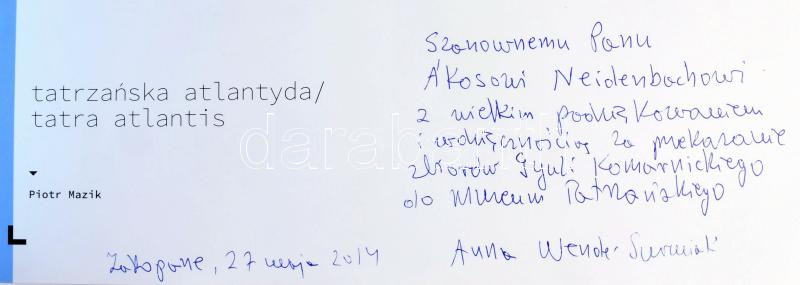 tatrzańska atlantyda/
tatra atlantis
Piotr Mazik
Szanownemu Panu
Ákosowi Neidenbachowi
z wielkim podziękowaniem
i wdzięcznością za przekazanie
zbiorów Gyuli Komarnickiego
do Muzeum Tatrzańskiego
Anna Wende-Surmiak
Zakopane, 27 maja 2014